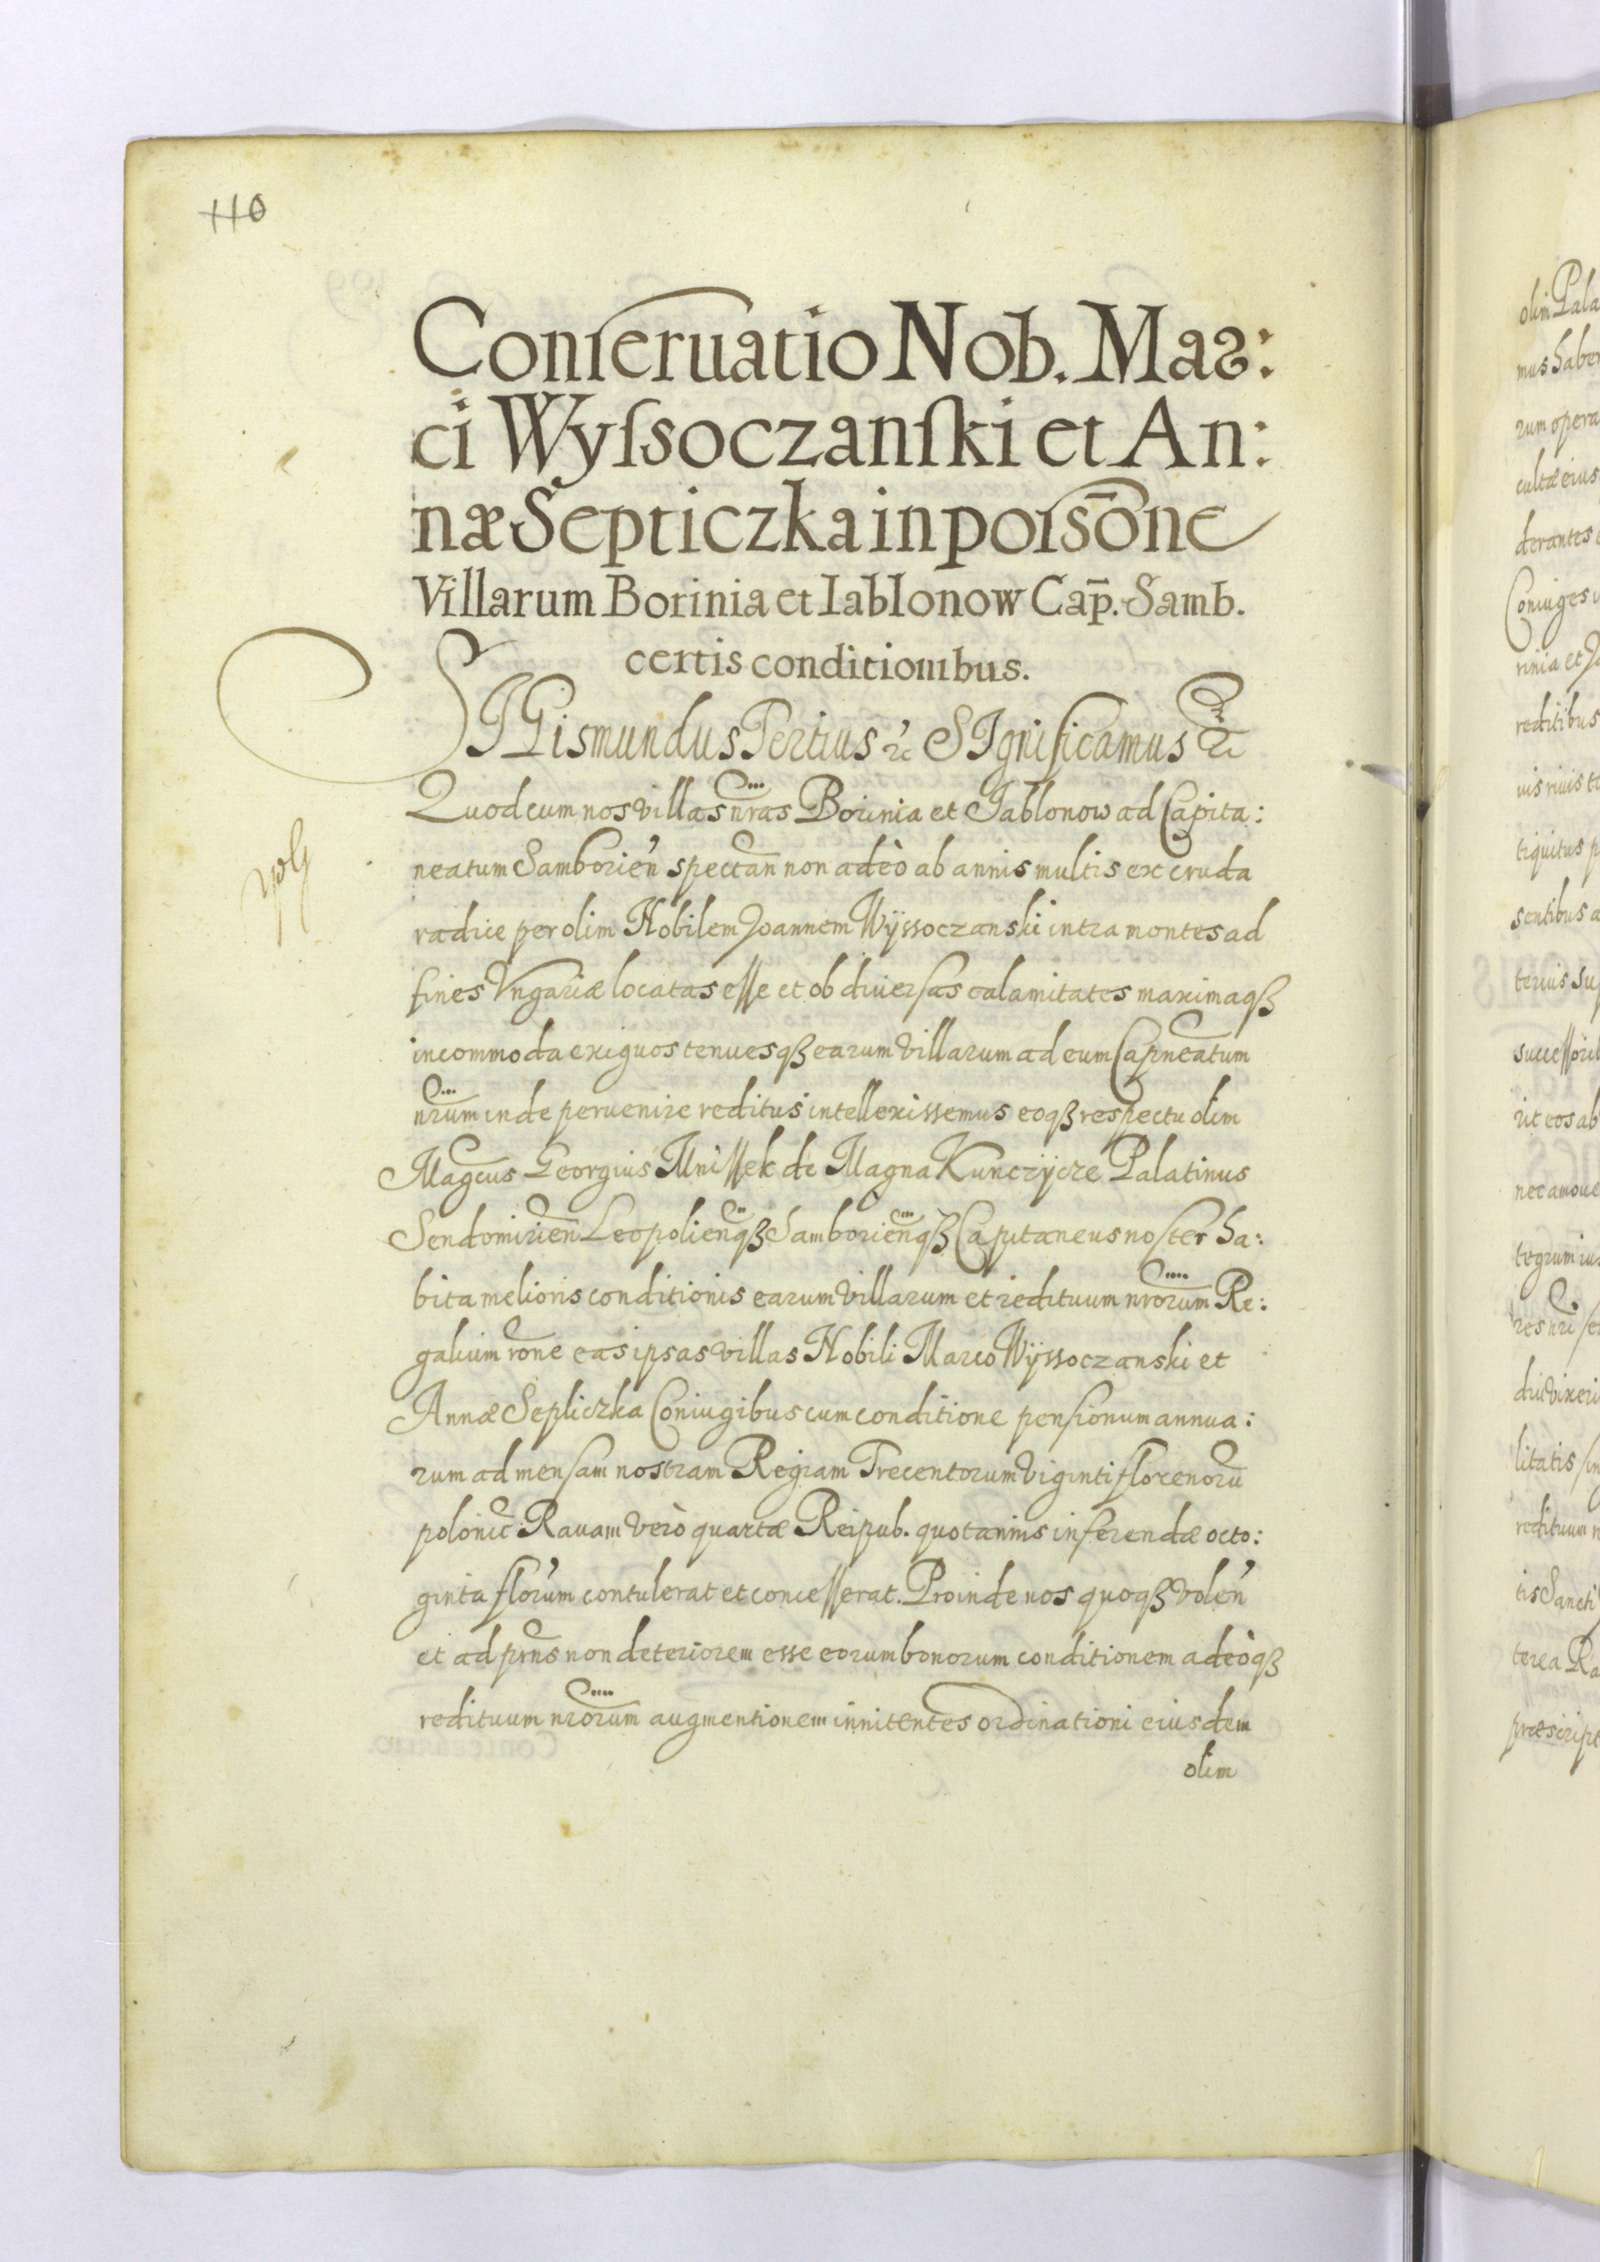 110
Conseruatio Nob. Mar:
ci Wyssoczanski et An:
næ Septiczka in possōne
Villarum Borinia et Iablonow Cap̄. Samb.
certis conditionibus.
SIGismundus Tertius &c SIgnificamus &c
Quod cum nos villas nr̃as Borinia et Jablonow ad Capita:
neatum Samborien̓ spectan̄ non adeò ab annis multis ex cruda
radice per olim Nobilem Joannem Wÿssoczanski intra montes ad
fines Vngariæ locatas esse et ob diuersas calamitates maximaqꝫ
incommoda exiguos tenuesqꝫ earum villarum ad eum Capneatum
nr̃um inde peruenire reditus intellexissemus eoqꝫ respectu olim
Magcus Georgius Mnissek de Magna Kunczÿcze Palatinus
Sendomirien̄ Leopolien̄qꝫ Samborien̄qꝫ Capitaneus noster ha:
bita melioris conditionis earum villarum et redituum nr̃orum Re:
galium rōne eas ipsas villas Nobili Marco Wÿssoczanski et
Annæ Sepliczka Coniugibus cum conditione pensionum annua:
rum ad mensam nostram Regiam Trecentorum viginti florenorū
polonic̄: Rauam verò quartæ Reipub. quotannis inferendæ octo:
ginta flor̓um contulerat et concesserat. Proinde nos quoqꝫ volen̓
et ad prn̄s non deteriorem esse eorum bonorum conditionem adeòqꝫ
redituum nr̃orum augmentionem innitentes ordinationi eiusdem
olim
olim Pala
mus haber
rum opera
cultæ eius
derantes
Coniuges
rinia et
reditibus
tiquitus p
sentibus a
terius su
rit eos ab
nec amoue
tegrum ius
litatis
redituum n
tis Sancti
terea Ra
præscript